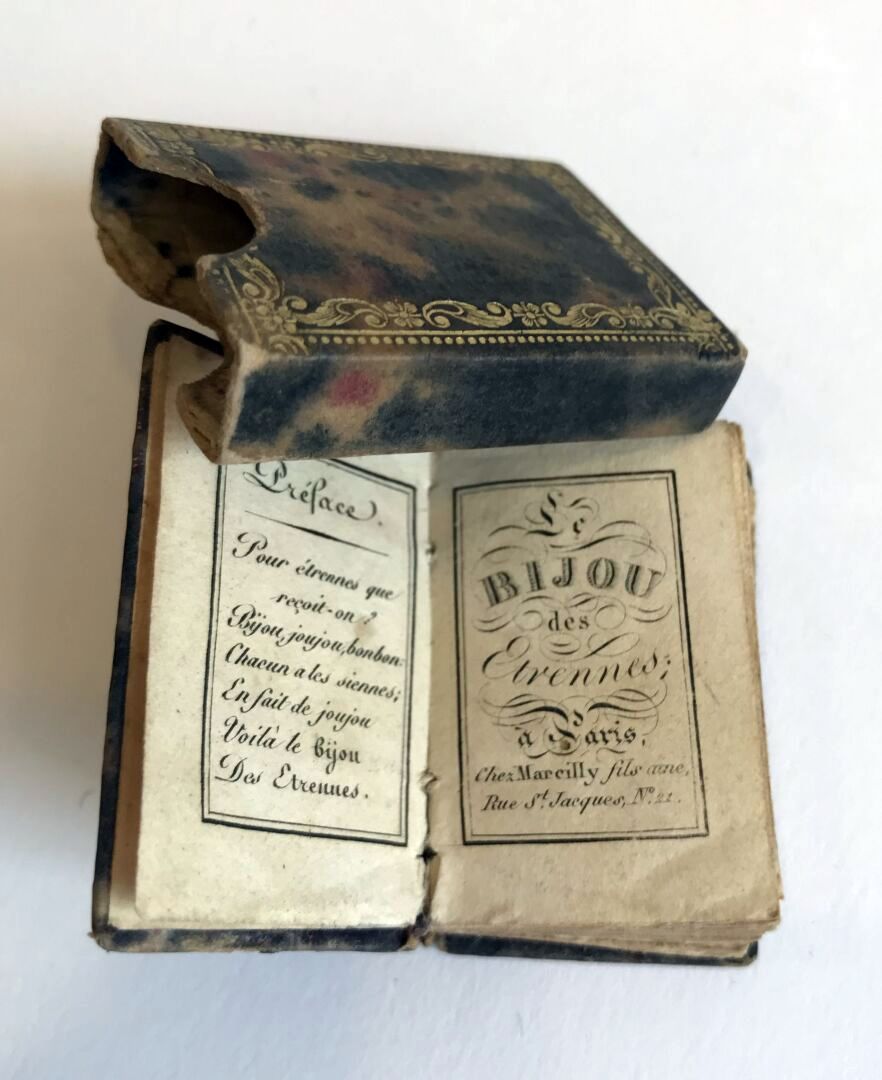 Préface.
Pour étrennes que
reçoit-on ?
Bijou, joujou, bonbon:
Chacun a les siennes;
En fait de joujou
Voilà le bijou
Des Etrennes.
Le
BIJOU
des
Etrennes;
à Paris,
Chez Marcilly fils aîné,
Rue St. Jacques, No. 21.